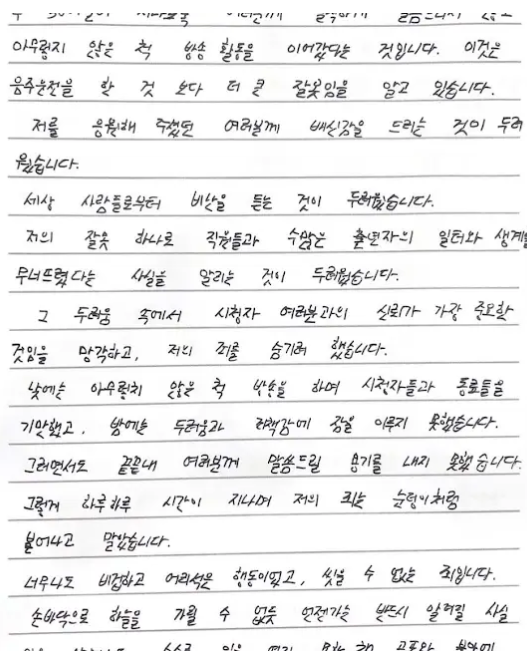 아무렇지 않은 척 방송 활동을 이어갔다는 것입니다. 이것은
음주운전을 한 것 보다 더 큰 잘못임을 알고 있습니다.
저를 응원해 주셨던 여러분께 배신감을 드리는 것이 두려
웠습니다.
세상 사람들로부터 비난을 듣는 것이 두려웠습니다.
저의 잘못 하나로 직원들과 수많은 출연자의 일터와 생계를
무너뜨렸다는 사실을 알리는 것이 두려웠습니다.
그 두려움 속에서 시청자 여러분과의 신뢰가 가장 중요한
것임을 망각하고, 저의 죄를 숨기려 했습니다.
낮에는 아무렇지 않은 척 방송을 하며 시청자들과 동료들을
기만했고, 밤에는 두려움과 자책감에 잠을 이루지 못했습니다.
그러면서도 끝끝내 여러분께 말씀드릴 용기를 내지 못했습니다.
그렇게 하루하루 시간이 지나며 저의 죄는 눈덩이처럼
불어나고 말았습니다.
너무나도 비겁하고 어리석은 행동이었고, 씻을 수 없는 죄입니다.
손바닥으로 하늘을 가릴 수 없듯 언젠가는 반드시 알려질 사실